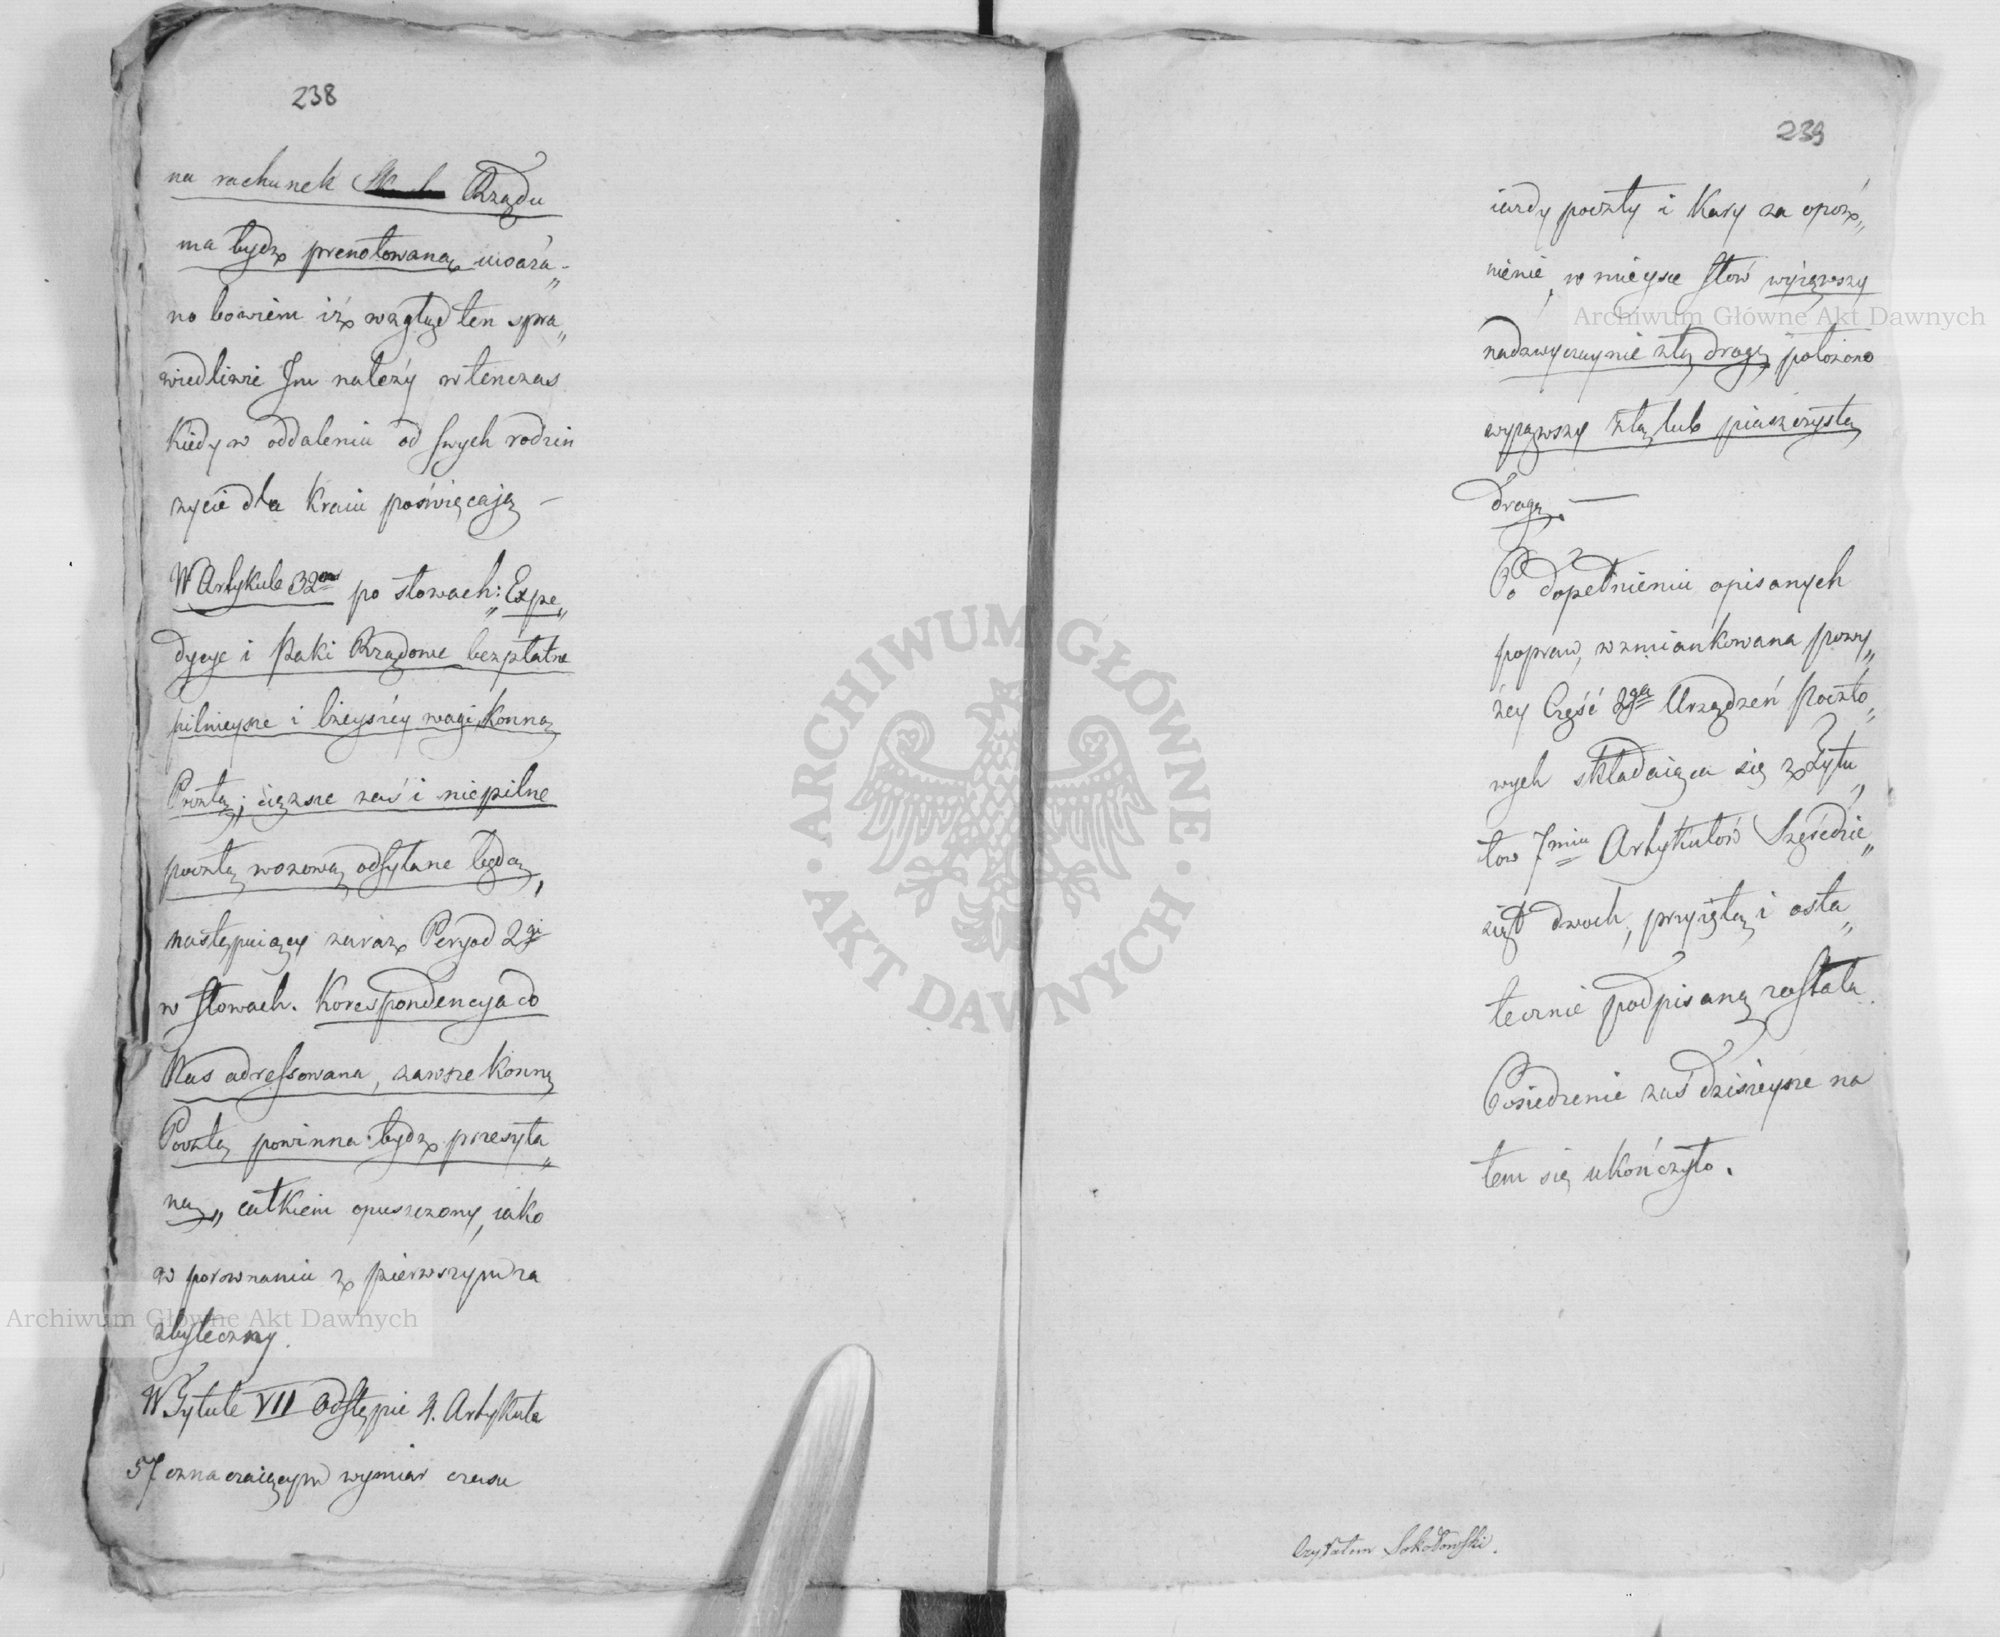 238
na rachunek Rządu
ma bydz prenotowaną uważa-
no bowiem iż wzgląd ten spra„
wiedliwie Im należy wtenczas
kiedy w oddaleniu od swych rodzin
życie dla Kraiu poświęcają —
W Artykule 32m po słowach: „Expe„
dycye i Paki Rządowe bezpłatne
pilnieysze i lżeyszéy wagi, Konną
Pocztą; cięższe zaś i niepilne
pocztą wozową odsyłane będą,
następuiący zaraz Peryod 2gi
w słowach. Korespondencya do
Nas adressowana, zawsze Konną
Pocztą powinna bydz przesyła„
ną„ całkiem opuszczony, iako
w porownaniu z pierwszym za
zbyteczny.
W Tytule VII odstępie 4. Artykułu
57 oznaczaiącym wymiar czasu
239
iazdy poczty i Kary za opóź„
nienie, w mieysce słów wyiąwszy
nadzwyczaynie złą drogę, położono
wyiąwszy złą lub piaszczystą
drogę. —
Po dopełnieniu opisanych
popraw, wzmiankowana powy„
żey Część 2ga Urządzeń Poczto„
wych składaiąca się z Tytu„
łow 7miu Artykułów Sześćdzie„
siąt dwoch, przyiętą i osta„
tecznie podpisaną została
Posiedzenie zaś dzisieysze na
tem się ukończyło.
Czytałem Sokołowski.
Archiwum Główne Akt Dawnych
Archiwum Główne Akt Dawnych
ARCHIWUM GŁÓWNE · AKT DAWNYCH ·